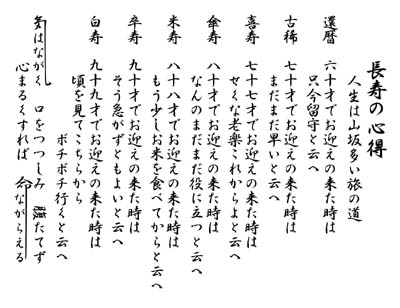 長寿の心得
人生は山坂多い旅の道
還暦 六十才でお迎えの来た時は
只今留守と云へ
古稀 七十才でお迎えの来た時は
まだまだ早いと云へ
喜寿 七十七才でお迎えの来た時は
せくな老楽これからよと云へ
傘寿 八十才でお迎えの来た時は
なんのまだまだ役に立つと云へ
米寿 八十八才でお迎えの来た時は
もう少しお米を食べてからと云へ
卒寿 九十才でお迎えの来た時は
そう急がずともよいと云へ
白寿 九十九才でお迎えの来た時は
頃を見てこちらから
ボチボチ行くと云へ
気はながく 口をつつしみ 腹たてず
心まるくすれば 命ながらえる